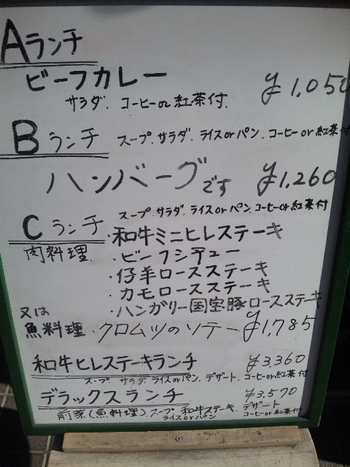 Aランチ
ビーフカレー
サラダ、コーヒーor紅茶付 ¥1,050
Bランチ スープ、サラダ、ライスorパン、コーヒーor紅茶付
ハンバーグです ¥1,260
Cランチ スープ、サラダ、ライスorパン、コーヒーor紅茶付
肉料理 ・和牛ミニヒレステーキ
・ビーフシチュー
・仔羊ロースステーキ
・カモロースステーキ
又は ・ハンガリー国宝豚ロースステーキ
魚料理・クロムツのソテー ¥1,785
和牛ヒレステーキランチ ¥3,360
スープ、サラダ、ライスorパン、デザート、コーヒーor紅茶付
デラックスランチ ¥3,570
前菜(魚料理)、スープ、和牛ステーキ、デザート
ライスorパン コーヒーor紅茶付